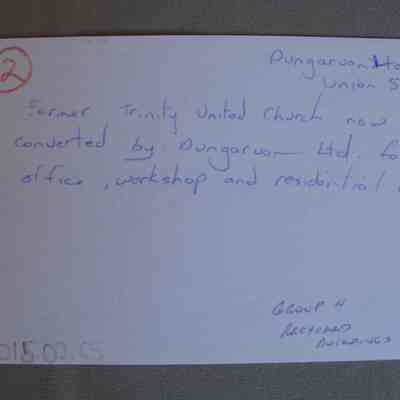 2
Dungarvan Ltd
Union S
Former Trinity United Church now
converted by Dungarvan Ltd. fo
office, workshop and residential
GROUP 4
RECYCLED
BUILDINGS
015.09.65